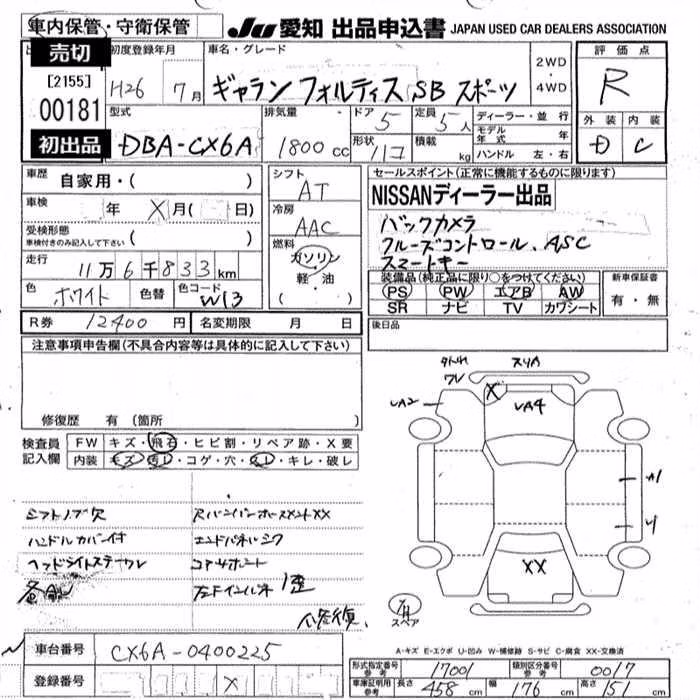 車内保管・守衛保管
JU 愛知 出品申込書 JAPAN USED CAR DEALERS ASSOCIATION
売切
[2155]
00181
初出品
初度登録年月
H26 7月
車名・グレード
ギャラン フォルティス SB スポーツ
2WD
・
4WD
評価点
R
型式
DBA-CX6A
排気量
1800 cc
ドア
5
定員
5人
形状
積載
kg
ディーラー・並行
モデル年式 年
ハンドル 左・右
外装 内装
D C
車歴 自家用・( )
車検 年 X月( 日)
受検形態
車検付きのみ記入して下さい ( )
走行
11万6千833km
色 ホワイト 色替 色コード W13
シフト
AT
冷房
AAC
燃料
ガソリン
軽・油
( )
セールスポイント(正常に機能するものに限ります)
NISSANディーラー出品
バックカメラ
クルーズコントロール、ASC
スマートキー
装備品(純正品に限り○をつけてください)
PS PW エアB AW
SR ナビ TV カワシート
新車保証書
有・無
R券 12400円 名変期限 月 日
後日品
注意事項申告欄(不具合内容等は具体的に記入して下さい)
修復歴 有 (箇所 )
検査員記入欄
FW キズ・飛石・ヒビ割・リペア跡・X要
内装 キズ・汚れ・コゲ・穴・スレ・キレ・破レ
シフトノブ欠
ハンドルカバー付
RバンパーホースメントXX
コアサポート
スリキズ
ワレ
X
UA2
UA4
A1
XX
有
スペア
A-キズ E-エクボ U-凹み W-補修跡 S-サビ C-腐食 XX-交換済
車台番号 CX6A-0400225
登録番号 X
形式指定番号
参考
17001
類別区分番号
参考
0017
車庫証明用
参考
長さ 458 cm 幅 176 cm 高さ 151 cm